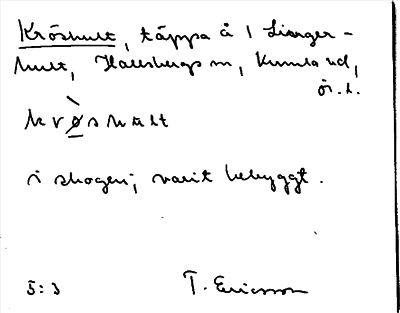 Kröshult, täppa å 1 Lianger-
hult, Hallsbergs sn, Kumla hd,
ör. l.
krøshult
i skogen; varit bebyggt.
5:3 T. Ericsson